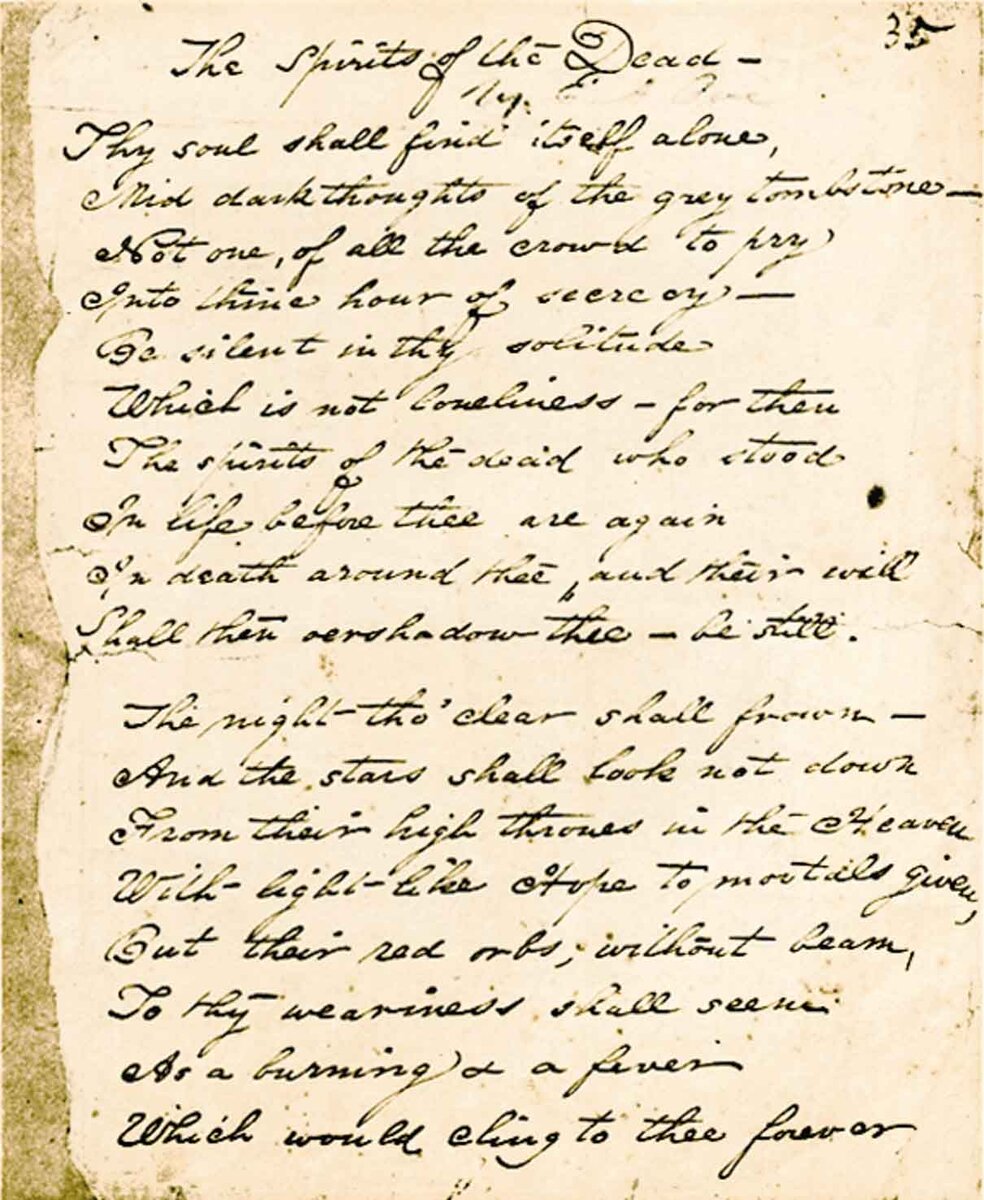 35
The Spirits of the Dead –
Thy soul shall find itself alone,
Mid dark thoughts of the grey tombstone –
Not one, of all the crowd to pry
Into thine hour of secrecy –
Be silent in thy solitude
Which is not loneliness – for then
The spirits of the dead who stood
In life before thee are again
In death around thee, and their will
Shall then overshadow thee – be still.
The night tho' clear shall frown –
And the stars shall look not down
From their high thrones in the Heaven
With light like Hope to mortals given,
But their red orbs, without beam,
To thy weariness shall seem
As a burning & a fever
Which would cling to thee forever